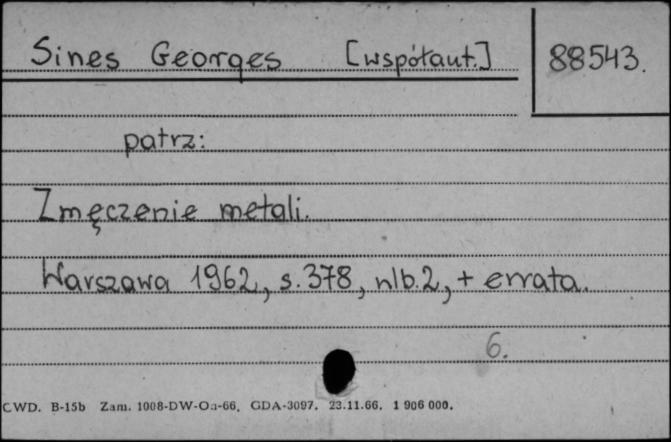 Sines Georges [współaut.] 88543.
patrz:
Zmęczenie metali.
Warszawa 1962, s. 378, nlb. 2, + errata.
6.
CWD. B-15b Zam. 1008-DW-Oa-66. GDA-3097. 23.11.66. 1 906 000.